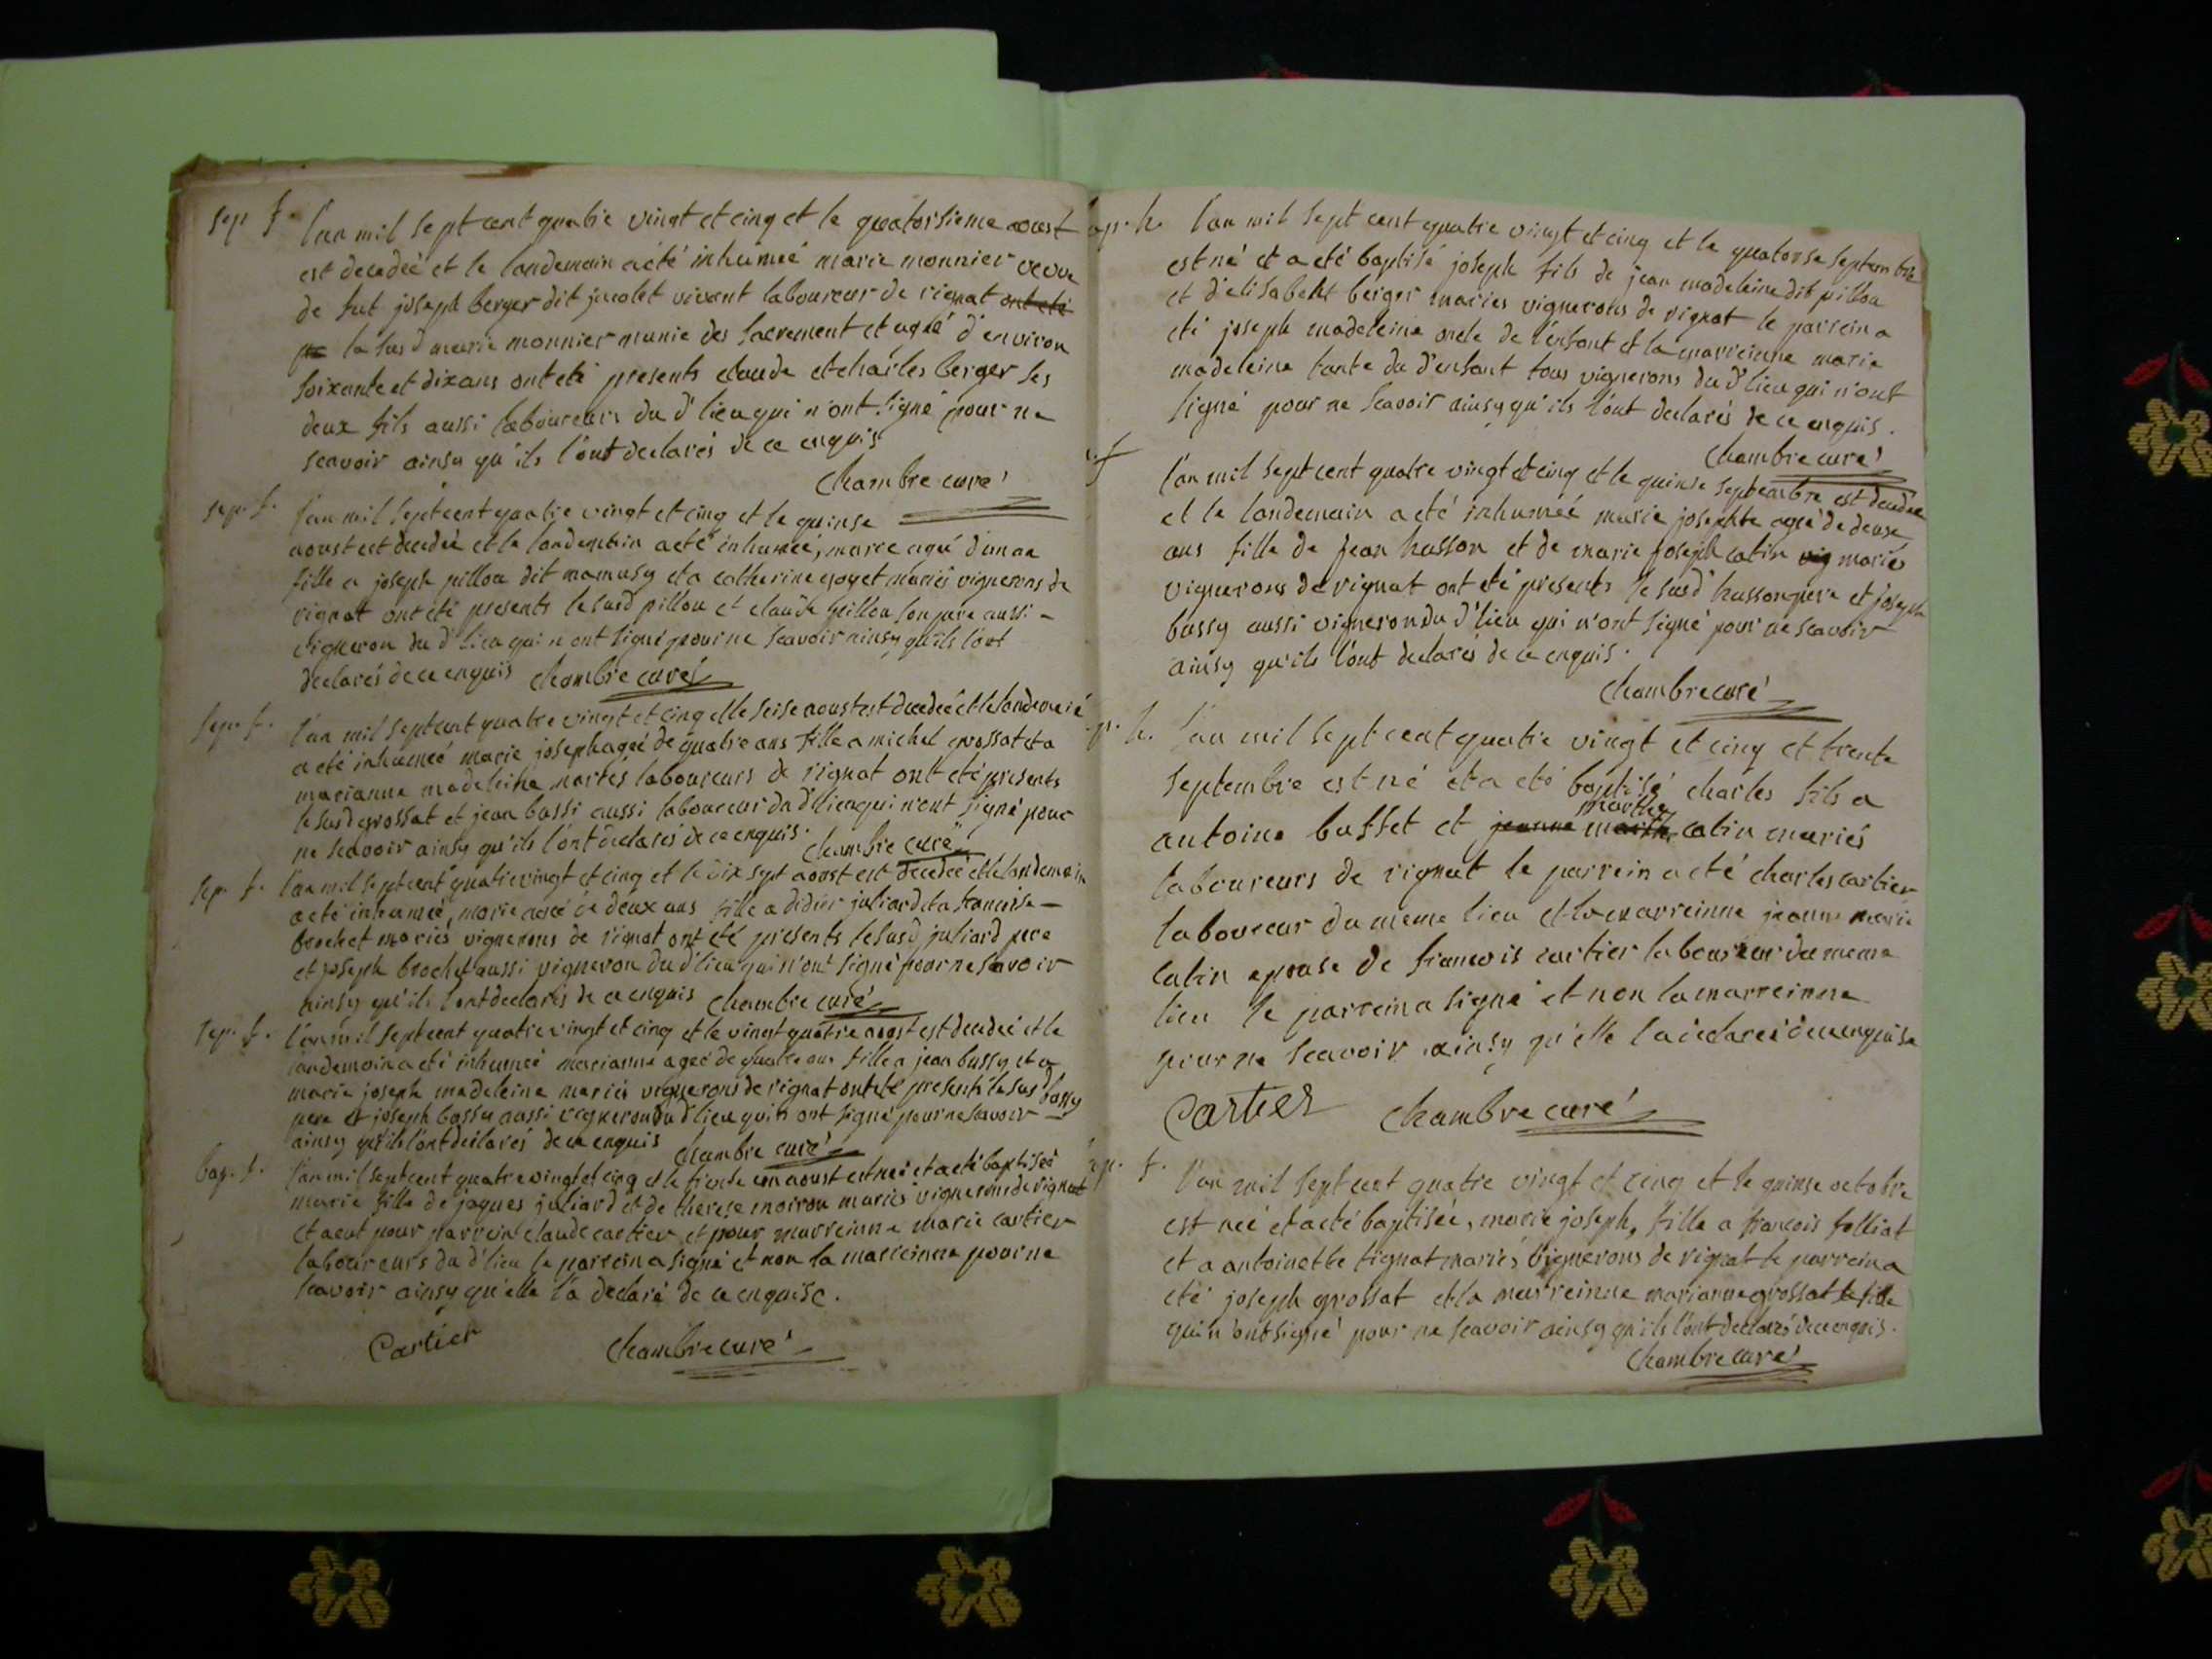 sep f. l'an mil sept cent quatre vingt et cinq et le quatorsieme aoust
est decedeé et le landemain a été inhumeé marie monnier veuve
de feut joseph berger dit jacolet vivant laboureur de rignat ont eté
la susd marie monnier munie des sacrement et ageé d'environ
soixante et dix ans ont eté presents claude et charles berger ses
deux fils aussi laboureurs du d' lieu qui n'ont signé pour ne
scavoir ainsy qu'ils l'ont declarés de ce enquis
Chambre curé
sep. f. l'an mil sept cent quatre vingt et cinq et le quinse
aoust est decedeé et le landemain a eté inhumeé, marie ageé d'un an
fille a joseph pillou dit mamusy et a catherine goyet mariés vignerons de
rignat ont eté presents le susd pillou et claude pillou son pere aussi -
vigneron du d' lieu qui n'ont signé pour ne scavoir ainsy qu'ils l'ont
declarés de ce enquis Chambre curé
sep. f. l'an mil sept cent quatre vingt et cinq et le seise aoust est decedeé et le landemain
a eté inhumeé marie joseph ageé de quatre ans fille a michel grossat et a
marianne madeleine mariés laboureurs de rignat ont eté presents
le susd grossat et jean bassi aussi laboureur du d' lieu qui n'ont signé pour
ne scavoir ainsy qu'ils l'ont declarés de ce enquis. Chambre curé
sep. f. l'an mil sept cent quatre vingt et cinq et le dix sept aoust est decedeé et le landemain
a eté inhumeé, marie ageé de deux ans fille a didier juliard et a francoise -
brochet mariés vignerons de rignat ont eté presents le susd juliard pere
et joseph brochet aussi vigneron du d' lieu qui n'ont signé pour ne scavoir
ainsy qu'ils l'ont declarés de ce enquis Chambre curé
sep. f. l'an mil sept cent quatre vingt et cinq et le vingt quatre aoust est decedeé et le
landemain a eté inhumeé marianne ageé de quatre ans fille a jean bussy et a
marie joseph madeleine mariés vignerons de rignat ont eté presents le susd bassy
pere et joseph bassy aussi vigneron du d' lieu qui n'ont signé pour ne scavoir
ainsy qu'ils l'ont declarés de ce enquis Chambre curé
bap. f. l'an mil sept cent quatre vingt et cinq et le trente un aoust est neé et a eté baptiseé
marie fille de jaques juliard et de therese moiron mariés vignerons de rignat
et a eut pour parrein claude cartier et pour marreinne marie cartier
laboureurs du d' lieu le parrein a signé et non la marreinne pour ne
scavoir ainsy qu'elle l'a declaré de ce enquise.
Cartier Chambre curé
ap. h. l'an mil sept cent quatre vingt et cinq et le quatorse septembre
est né et a eté baptisé joseph fils de jean madeleine dit pillou
et d'elisabeht berger mariés vignerons de rignat le parrein a
eté joseph madeleine oncle de l'enfant et la marreinne marie
madeleine tante du d'enfant tous vignerons du d' lieu qui n'ont
signé pour ne scavoir ainsy qu'ils l'ont declarés de ce enquis.
Chambre curé
f l'an mil sept cent quatre vingt et cinq et le quinse septembre est decedeé
et le landemain a eté inhumeé marie josephte ageé de deuse
ans fille de jean husson et de marie joseph catin vig mariés
vignerons de rignat ont eté presents le susd husson pere et joseph
bussy aussi vigneron du d' lieu qui n'ont signé pour ne scavoir
ainsy qu'ils l'ont declarés de ce enquis.
Chambre curé
ap. h. l'an mil sept cent quatre vingt et cinq et trente
septembre est né et a eté baptisé charles fils a
antoine buffet et jeanne marthe marthe catin mariés
laboureurs de rignat le parrein a eté charles cartier
laboureur du meme lieu et la marreinne jeanne marie
catin epouse de francois cartier laboureur du meme
lieu le parrein a signé et non la marreinne
pour ne scavoir ainsy qu'elle l'a declareé de ce enquise
Cartier Chambre curé
ap. f. l'an mil sept cent quatre vingt et cinq et le quinse octobre
est neé et a eté baptiseé, marie joseph, fille a francois folliat
et a antoinette tignat mariés vignerons de rignat le parrein a
eté joseph grossat et la marreinne marianne grossat sa fille
qui n'ont signé pour ne scavoir ainsy qu'ils l'ont declarés de ce enquis.
Chambre curé